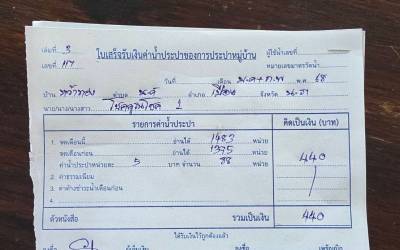 เล่มที่ 3 ใบเสร็จรับเงินค่าน้ำประปาของการประปาหมู่บ้าน ผู้ใช้น้ำเลขที่
เลขที่ 117 หมายเลขมาตรวัดน้ำ
วันที่ เดือน ม.ค+ก.พ พ.ศ. 68
บ้าน ตำบล อำเภอ เมือง จังหวัด
นาย/นาง/นางสาว 1
รายการค่าน้ำประปา คิดเป็นเงิน (บาท)
1. จดเดือนนี้ อ่านได้ 1483 หน่วย
จดเดือนก่อน อ่านได้ 1395 หน่วย
ค่าน้ำประปาหน่วยละ 5 บาท จำนวน 88 หน่วย 440
2. ค่าธรรมเนียม
3. ค่าค้างชำระน้ำเดือนก่อน
ตัวหนังสือ รวมเป็นเงิน 440
ได้รับเงินไว้ถูกต้องแล้ว
ลงชื่อ ผู้เก็บเงิน ลงชื่อ